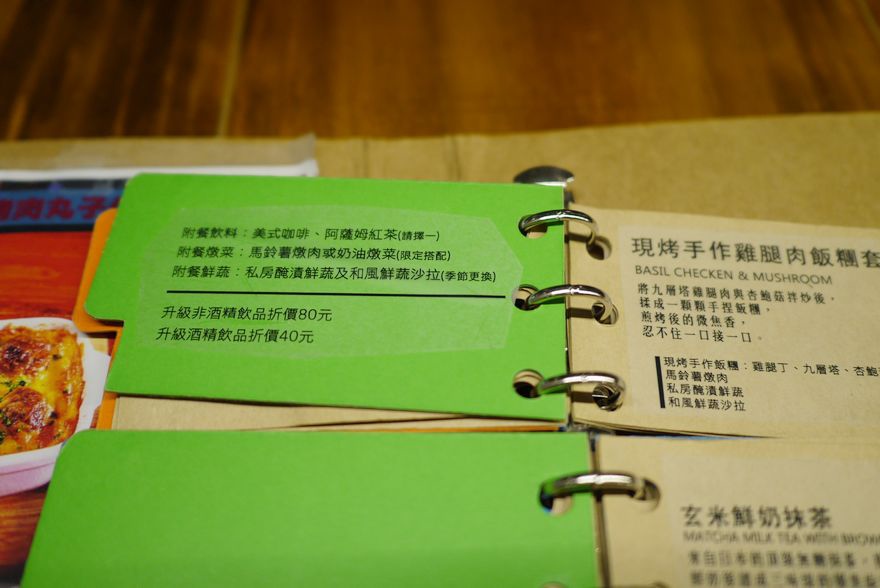 肉丸子
附餐飲料：美式咖啡、阿薩姆紅茶(請擇一)
附餐燉菜：馬鈴薯燉肉或奶油燉菜(限定搭配)
附餐鮮蔬：私房醃漬鮮蔬及和風鮮蔬沙拉(季節更換)
升級非酒精飲品折價80元
升級酒精飲品折價40元
現烤手作雞腿肉飯糰套
BASIL CHECKEN & MUSHROOM
將九層塔雞腿肉與杏鮑菇拌炒後，
揉成一顆顆手捏飯糰，
煎烤後的微焦香，
忍不住一口接一口。
現烤手作飯糰：雞腿丁、九層塔、杏鮑
馬鈴薯燉肉
私房醃漬鮮蔬
和風鮮蔬沙拉
玄米鮮奶抹茶
MATCHA MILK TEA WITH BROW